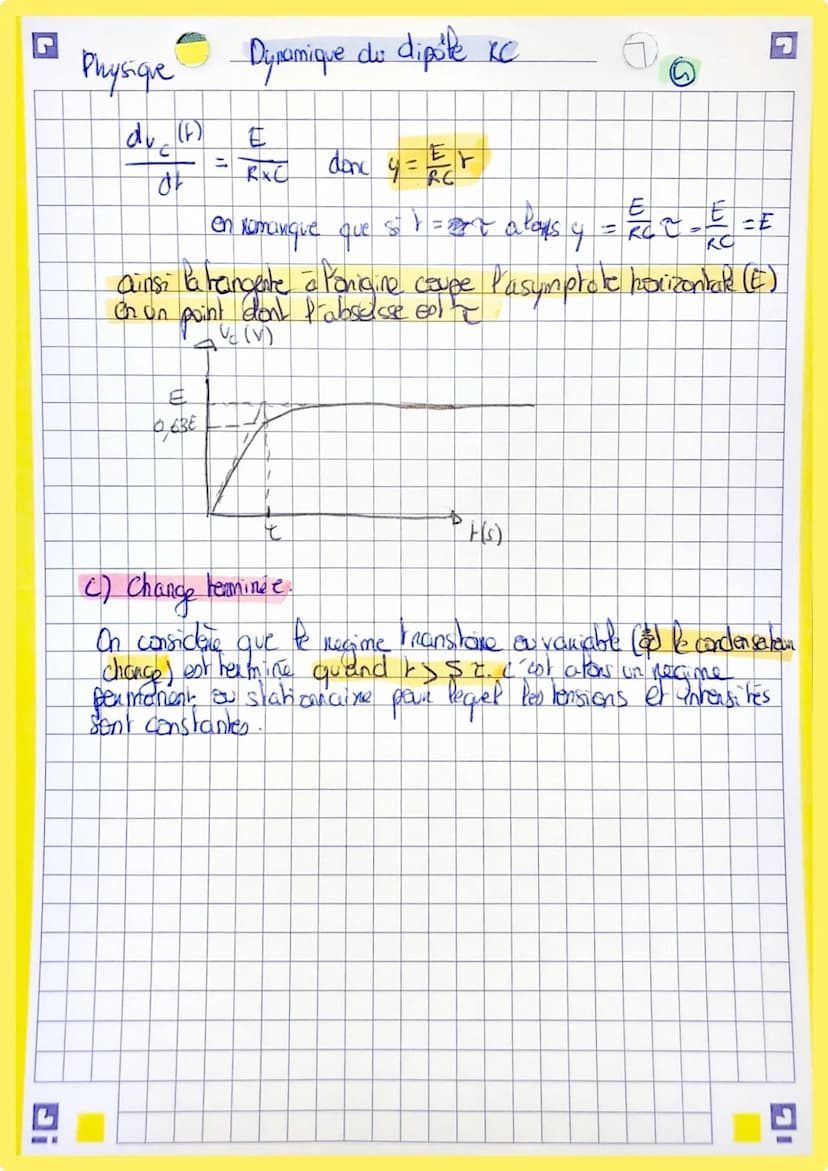 Physique
Dynamique du dipôle RC
7
5
duc(t)/dt = E/R×C donc y = E/RC t
on remarque que si t = τ alors y = E/RC τ = E/RC = E
ainsi la tangente à l'origine coupe l'asymptote horizontale (E)
en un point dont l'abscisse est τ
Uc (V)
E
0,63E
τ
t(s)
C) Charge terminée.
On considère que le regime transitoire ou variable ( le condensateur
charge) est terminé quand t > 5 τ. C'est alors un regime
permanent ou stationnaire pour lequel les tensions et intensités
sont constantes.